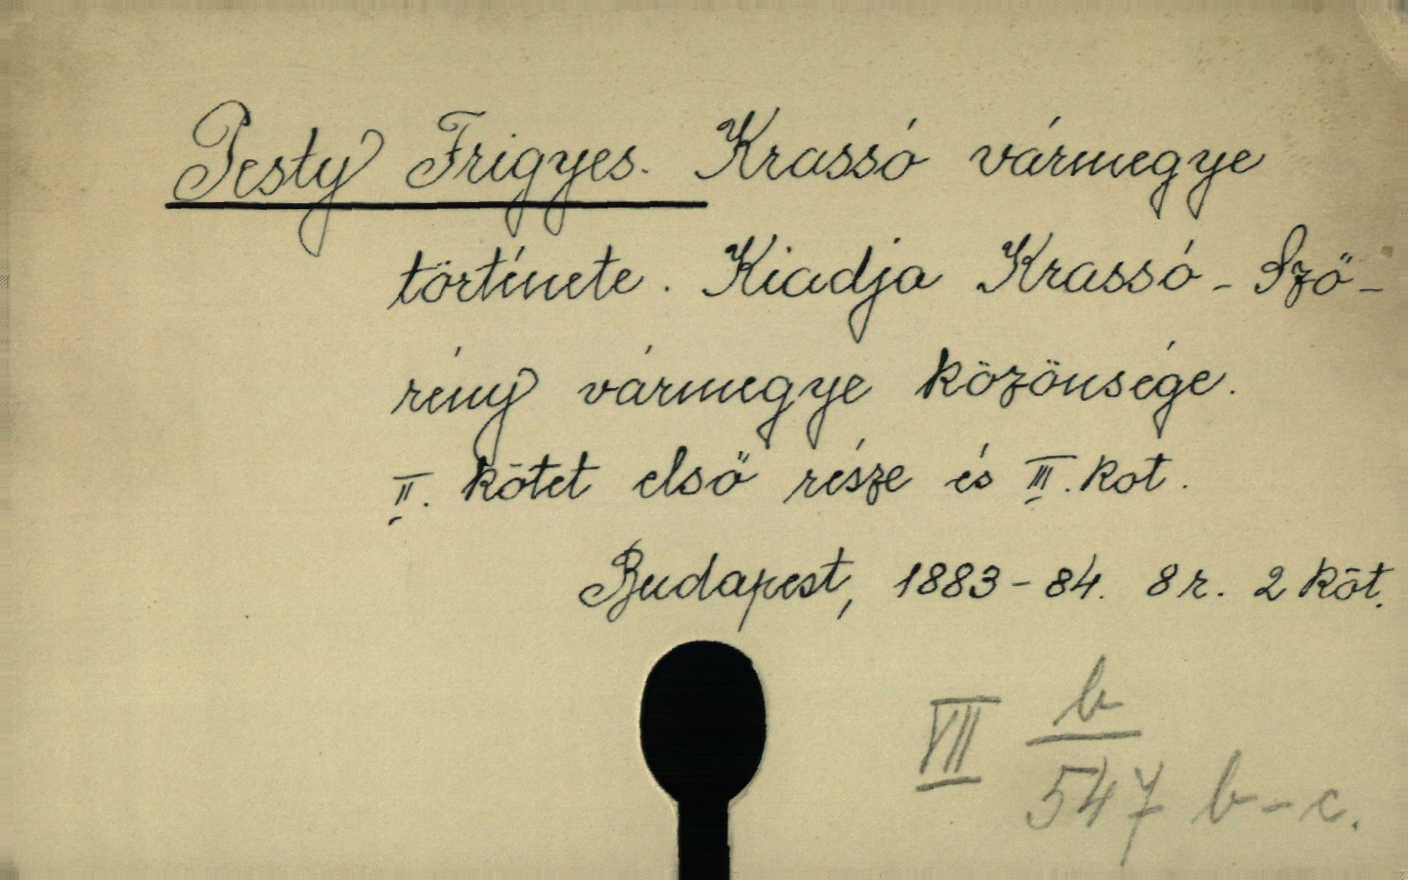 Pesty Frigyes. Krassó vármegye
története. Kiadja Krassó-Sző-
rény vármegye közönsége.
II. kötet első része és III. kot.
Budapest, 1883-84. 8r. 2 köt.
VII b/547 b-c.